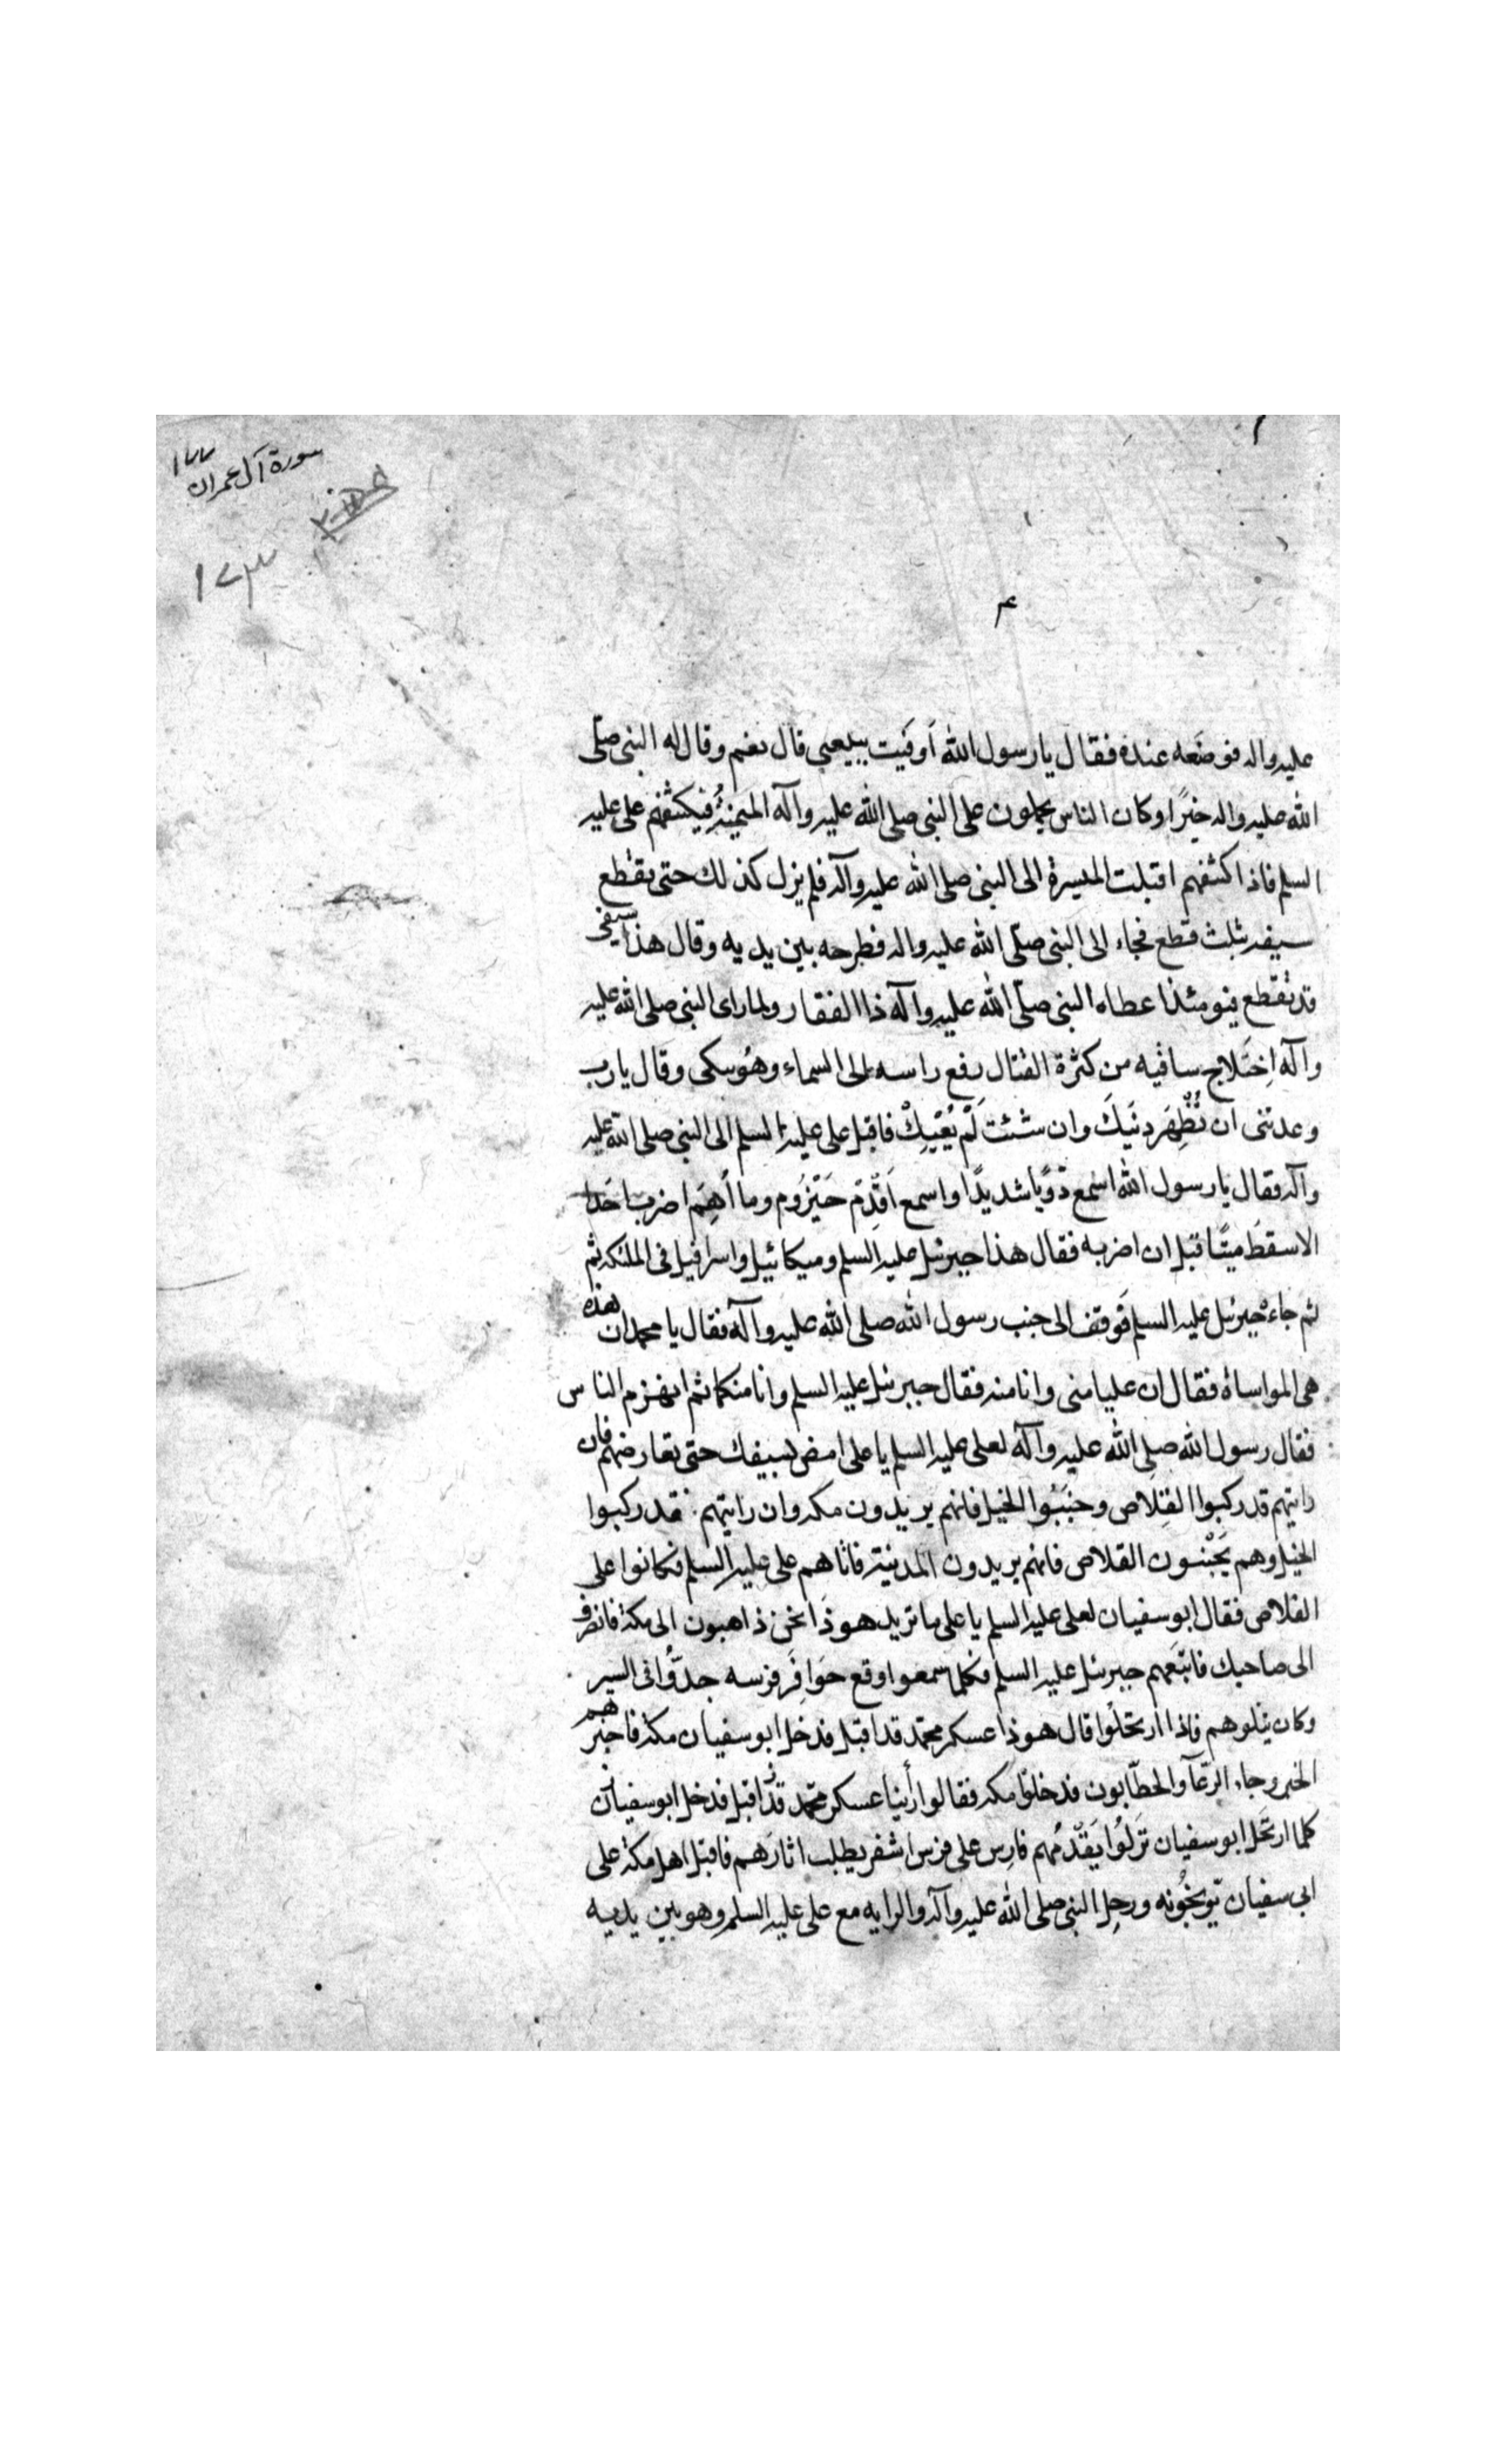 سورة آل عمران
١٧٧
١٧٣
عليه واله فوضعه عنده فقال يا رسول الله أوفيت ببيعتي قال نعم وقال له النبي صلّى
الله عليه واله خيرًا وكان الناس يحملون على النبي صلى الله عليه وآله الميمنةُ فيكشفهم على عليه
السلم فاذا كشفهم اقبلت الميسرة الى النبي صلى الله عليه وآله فلم يزل كذلك حتى تقطع
سيفه بثلث قطع فجاء الى النبي صلّى الله عليه واله فطرحه بين يديه وقال هذا سيفى
قد تقطع فيومئذ اعطاه النبي صلّى الله عليه وآله ذا الفقار ولما راى النبي صلى الله عليه
وآله اِختَلاج ساقيه من كثرة القتال رفع راسه الى السماء وهُو يبكى وقال يا رب
وعدتنى ان تُظْهِرَ دينَكَ وان شئت لَمْ يُعْيِكْ فاقبل على عليه السلم الى النبي صلى الله عليه
وآله فقال يا رسول الله اسمع دَويًا شديدًا واسمع اَقْدِمْ حَيْزُوم وما اَهِمَّ اضرب احَدا
الا سقط ميتًا قبل ان اضربه فقال هذا جبرئيل عليه السلم وميكائيل واسرافيل فى الملئكه ثم
ثم جاءَ جبرئيل عليه السلم فَوقف الى جنب رسول الله صلى الله عليه وآله فقال يا محمد ان هذه
هى المواساة فقال ان عليا منى وانا منه فقال جبرئيل عليه السلم وانا منكما ثم انهزم الناس
فقال رسول الله صلى الله عليه وآله لعلى عليه السلم يا على امض بسيفك حتى تعارضهم فان
رايتهم قد ركبوا القِلاص وجنَبُوا الخيل فانهم يريدون مكه وان رايتهم قد ركبوا
الخيل وهم يَجْنبون القلاص فانهم يريدون المدينة فاتاهم على عليه السلم فكانوا على
القلاص فقال ابو سفيان لعلى عليه السلم يا على ما تريد هو ذَا نحن ذاهبون الى مكة فانصرف
الى صاحبك فاتبَعَهم جبرئيل عليه السلم فكلما سمعوا وقع حَوافِرَ فرسه جدّوُا فى السير
وكان يتلوهم فاذا ارتحلوْا قال هو ذا عسكر محمّد قد اقبل فدخل ابو سفيان مكة فاخبرهم
الخبر وجاء الرّعآ والحطّابون فدخلوا مكه فقالوا رأينا عسكر محمّد قد اقبل فدخل ابو سفيان
كلما ارتحَل ابو سفيان نَزلُوا يَقدّمُهم فارِس على فرس اشقر يطلب اثارَهم فاقبل اهل مكة على
ابي سفيان يُوبخُونه ورحل النبي صلى الله عليه وآله والرايه مع على عليه السلم وهو بين يديه